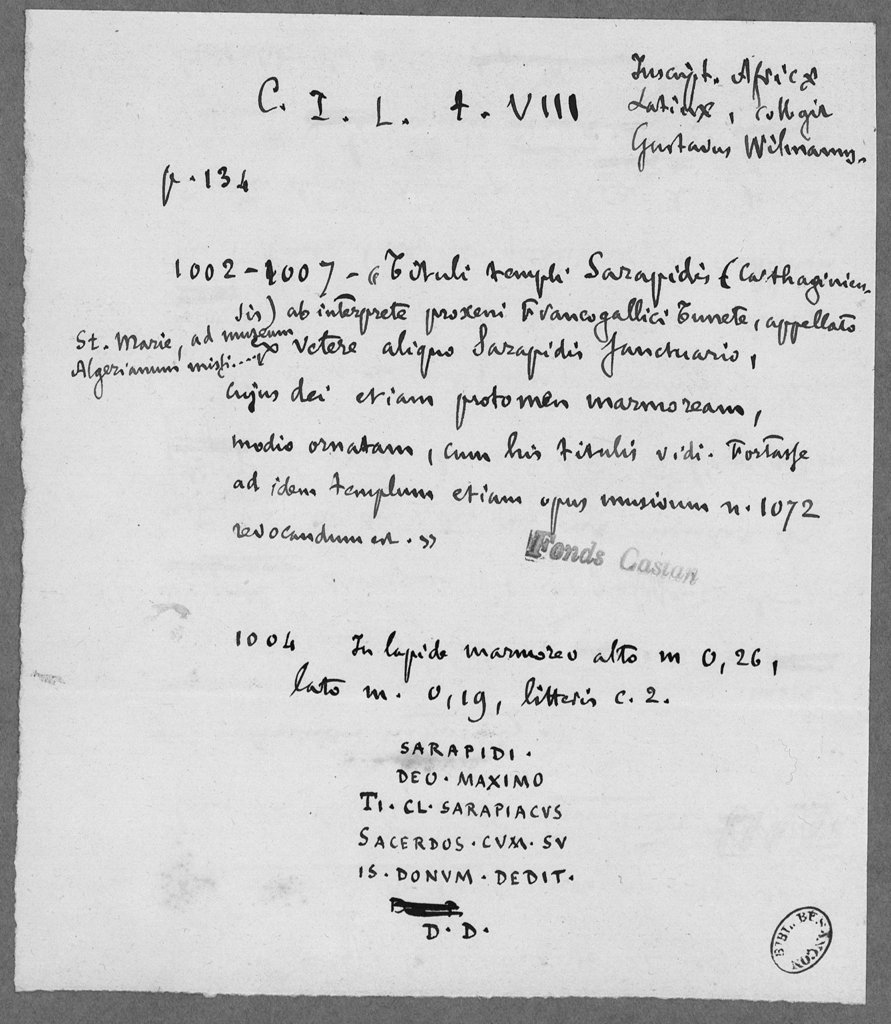 C. I. L. t. VIII
Inscript. Africæ
Latinæ, collegit
Gustavus Wilmanns.
p. 134
1002-1007 - « Tituli templi Sarapidis (Carthaginien-
sis) ab interprete proxeni Francogallici Tunete, appellato
St. Marie, ad museum
Algerianum missi....
ex vetere aliquo Sarapidis sanctuario,
cujus dei etiam protomen marmoream,
modio ornatam, cum his titulis vidi. Fortasse
ad idem templum etiam opus musivum n. 1072
revocandum est. »
Fonds Casian
1004 In lapide marmoreo alto m 0,26,
lato m. 0,19, litteris c. 2.
SARAPIDI.
DEO. MAXIMO
TI. CL. SARAPIACVS
SACERDOS. CVM. SV
IS. DONVM. DEDIT.
D. D.
BIBL. BESANCON